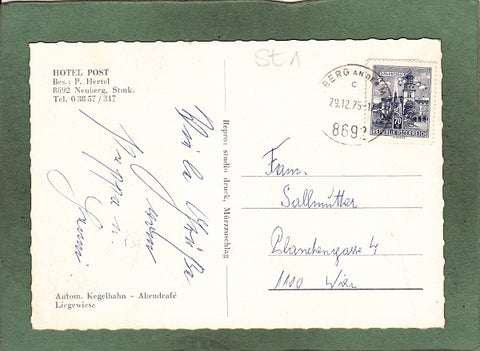 St 1
HOTEL POST
Bes.: P. Hertel
8692 Neuberg, Stmk.
Tel. 0 38 57 / 317
Viele Grüße
von
Pappa u.
BERG AN DER
c
29.12.75-1
8692
70
REPUBLIK ÖSTERREICH
Fam.
Sallmutter
1110 Wien
Repro: studio druck, Mürzzuschlag
Autom. Kegelbahn - Abendcafé
Liegewiese